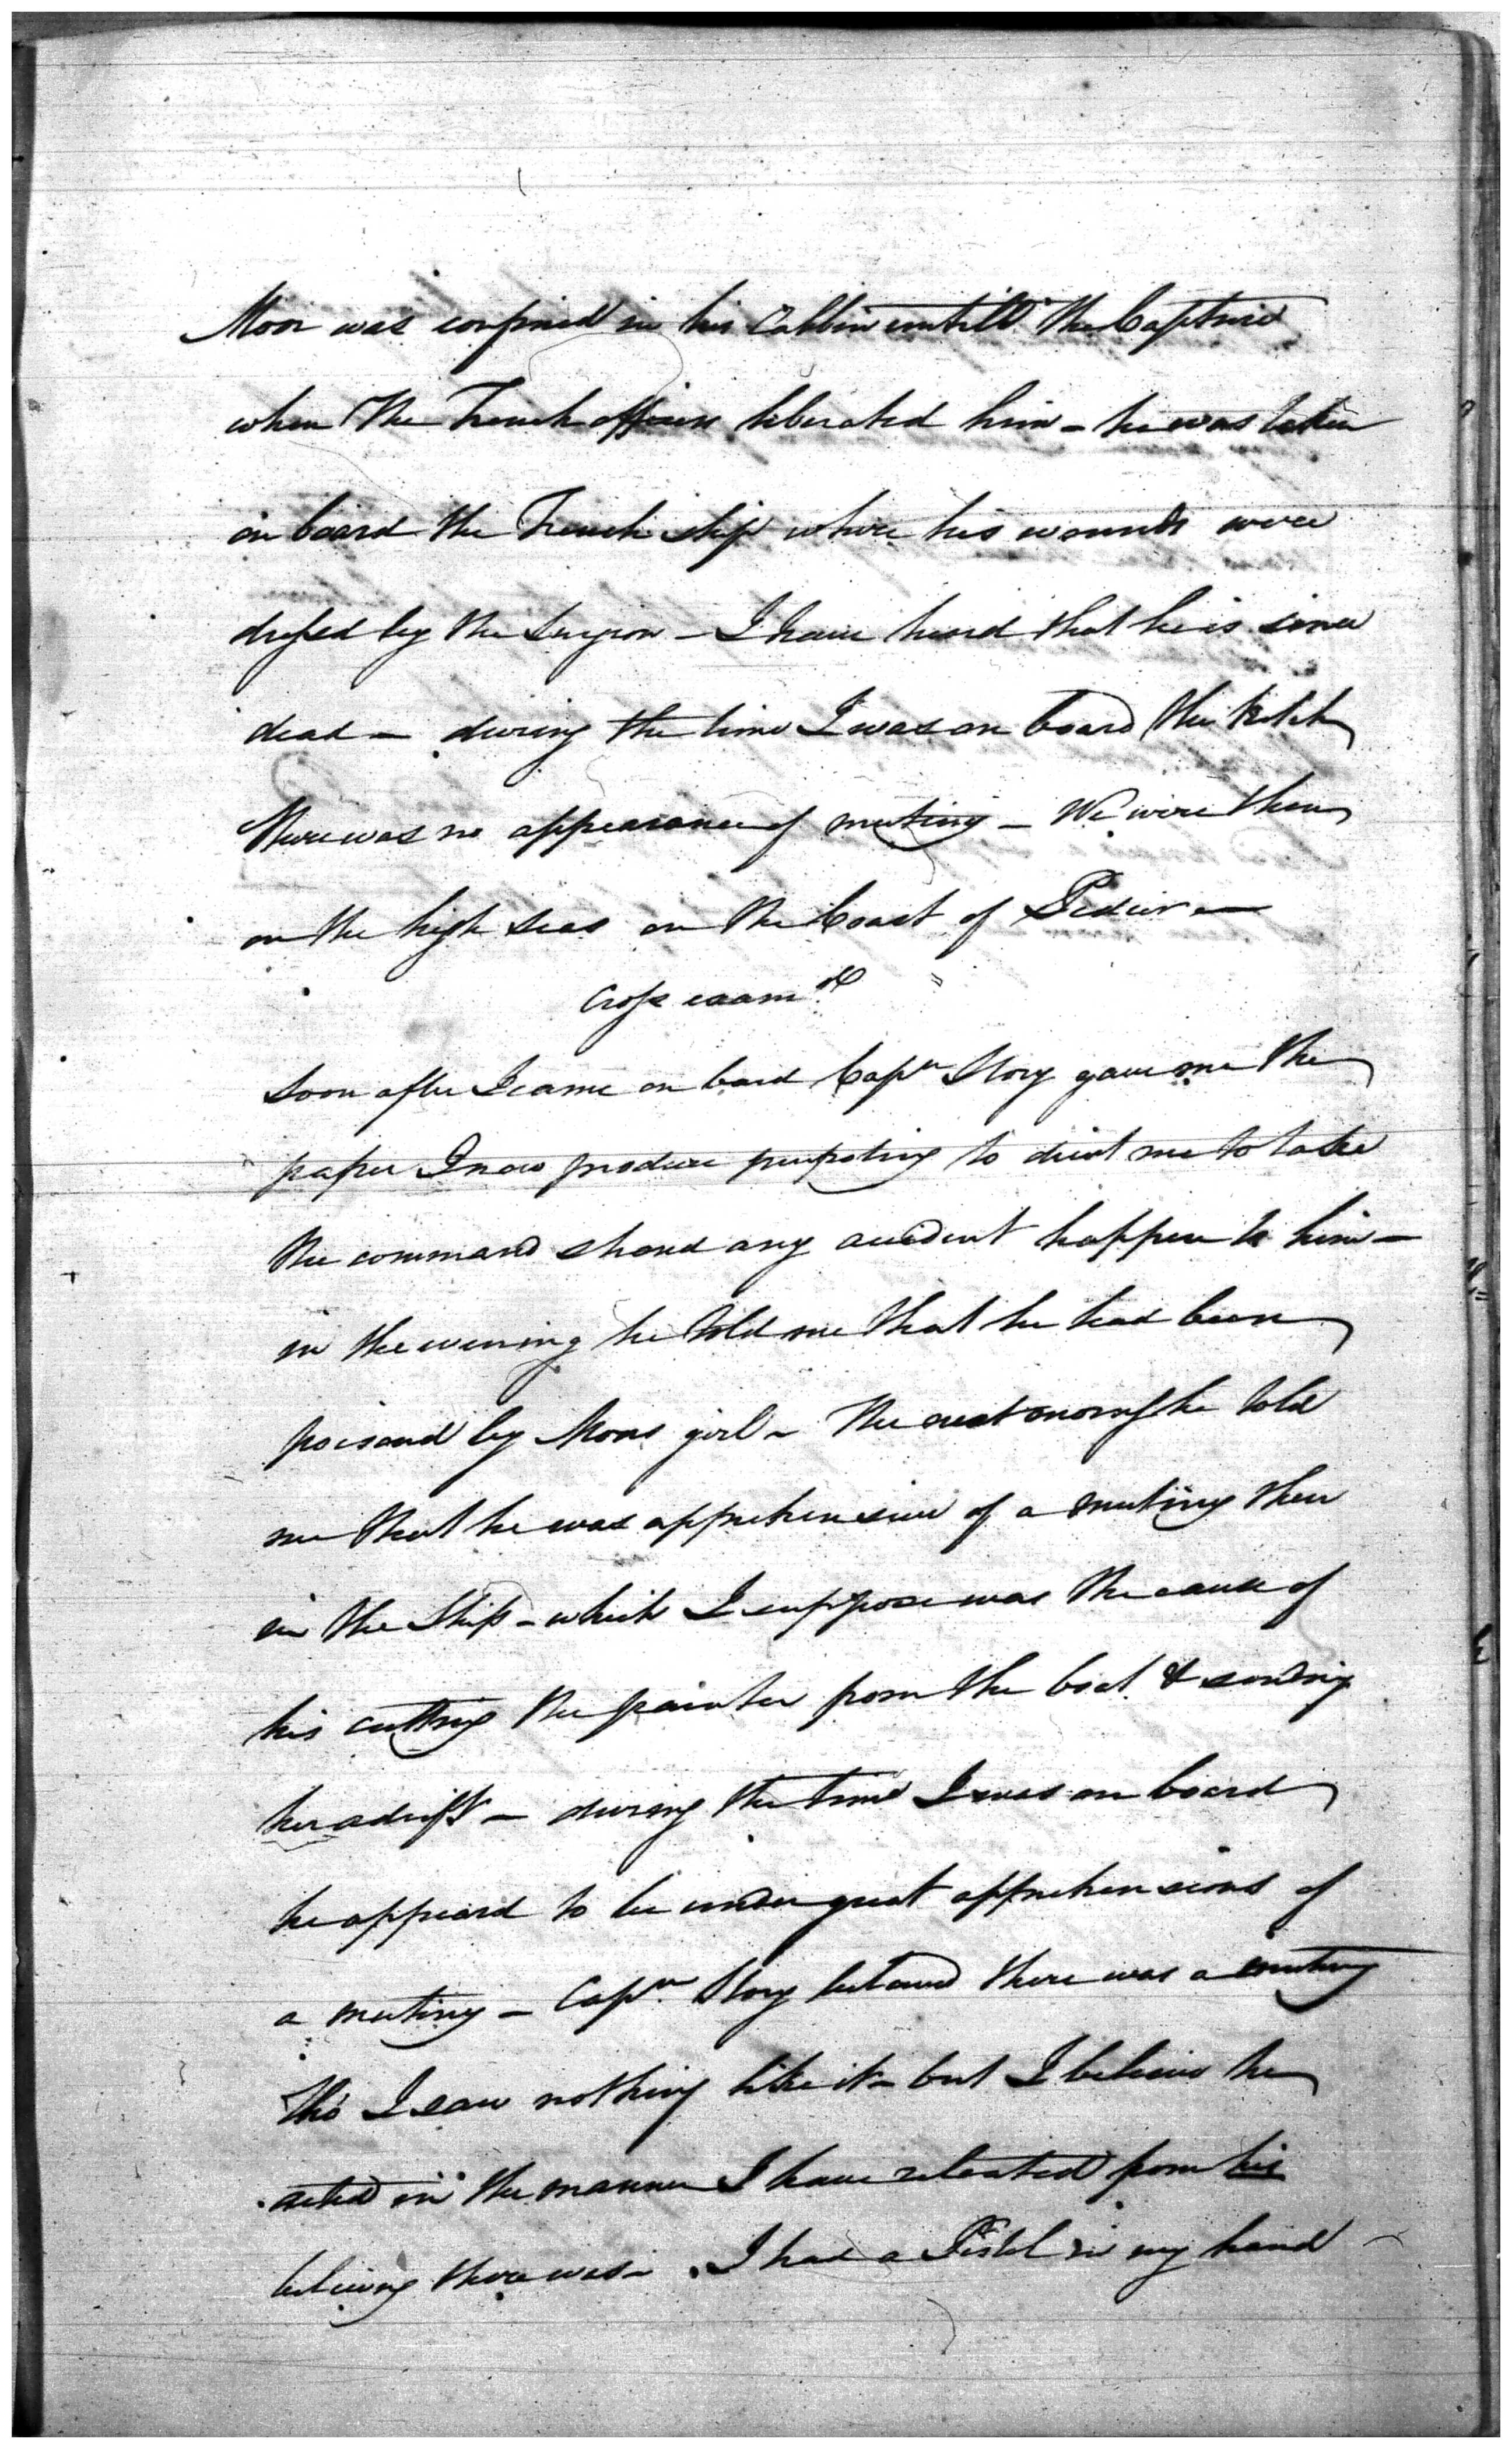 Moor was confined in his Cabbin untill the Capture
when the French officers liberated him - he was taken
on board the French ship where his wounds were
dressed by the Surgeon - I have heard that he is since
dead - during the time I was on board the Ketch
there was no appearance of mutiny - We were then
on the high seas on the Coast of Pedeir -
Cross examd
Soon after I came on board Capn Story gave me the
paper I now produce purpoting to direct me to take
the command shoud any accident happen to him -
in the evening he told me that he had been
poisoned by Moors girl - the next morng he told
me that he was apprehensive of a mutiny then
in the Ship - which I suppose was the cause of
his cutting the painter from the boat & sending
her adrift - during the time I was on board
he appeard to be under great apprehensions of
a mutiny - Capn Story believed there was a mutiny
tho' I saw nothing like it - but I believe he
acted in the manner I have related from his
believing there was - I had a Pistol in my hand